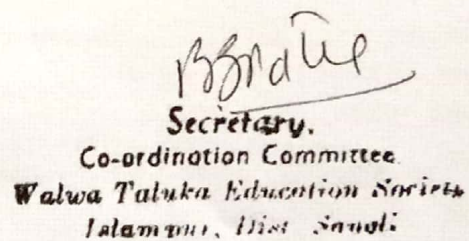 Secretary.
Co-ordination Committee
Walwa Taluka Education Society
Islampur, Dist Sangli